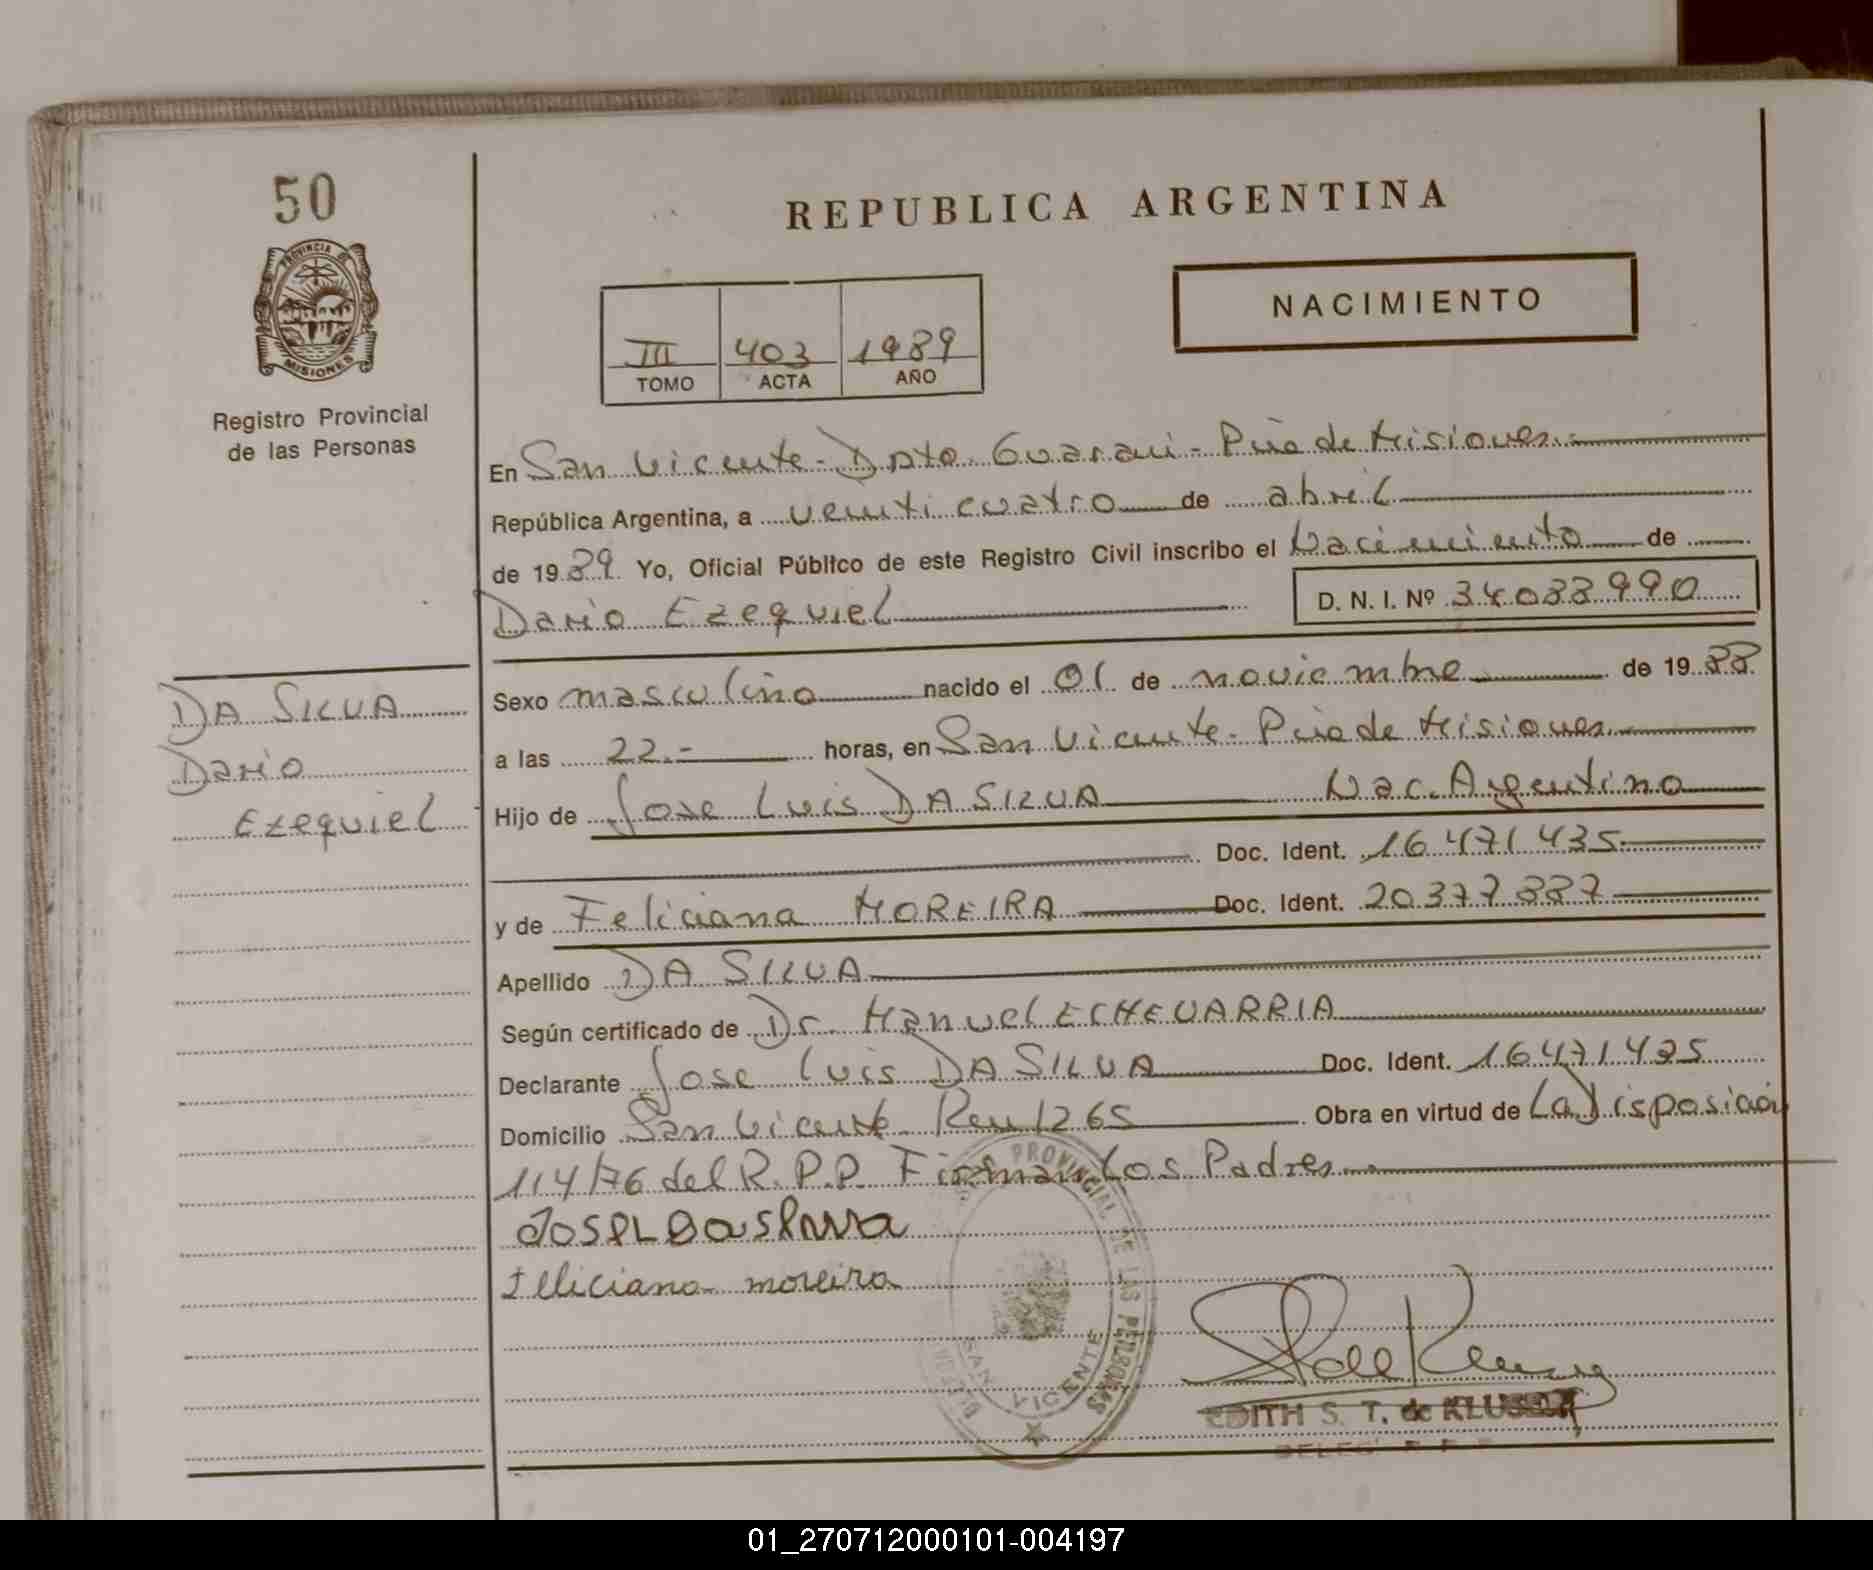 50
PROVINCIA DE
MISIONES
Registro Provincial
de las Personas
REPUBLICA ARGENTINA
NACIMIENTO
III 403 1989
TOMO ACTA AÑO
En San Vicente - Dpto. Guarani - Pcia de Misiones.-
República Argentina, a venti cuatro de abril
de 1989. Yo, Oficial Público de este Registro Civil inscribo el Nacimiento de
Dario Ezequiel D. N. I. Nº 34033990
DA SILVA
Dario
Ezequiel
Sexo masculino nacido el 01 de noviembre de 1988.
a las 22.- horas, en San Vicente - Pcia de Misiones.
Hijo de Jose Luis DA SILVA Nac. Argentino
Doc. Ident. 16 471 435
y de Feliciana MOREIRA Doc. Ident. 20377887
Apellido DA SILVA
Según certificado de Dr. Manuel ECHEVARRIA
Declarante Jose Luis DA SILVA Doc. Ident. 16471435
Domicilio San Vicente Obra en virtud de La Disposición
114/76 del R.P.P. Firman Los Padres.
Feliciana moreira
REGISTRO PROVINCIAL DE LAS PERSONAS
SAN VICENTE
EDITH S. T. de
01_270712000101-004197